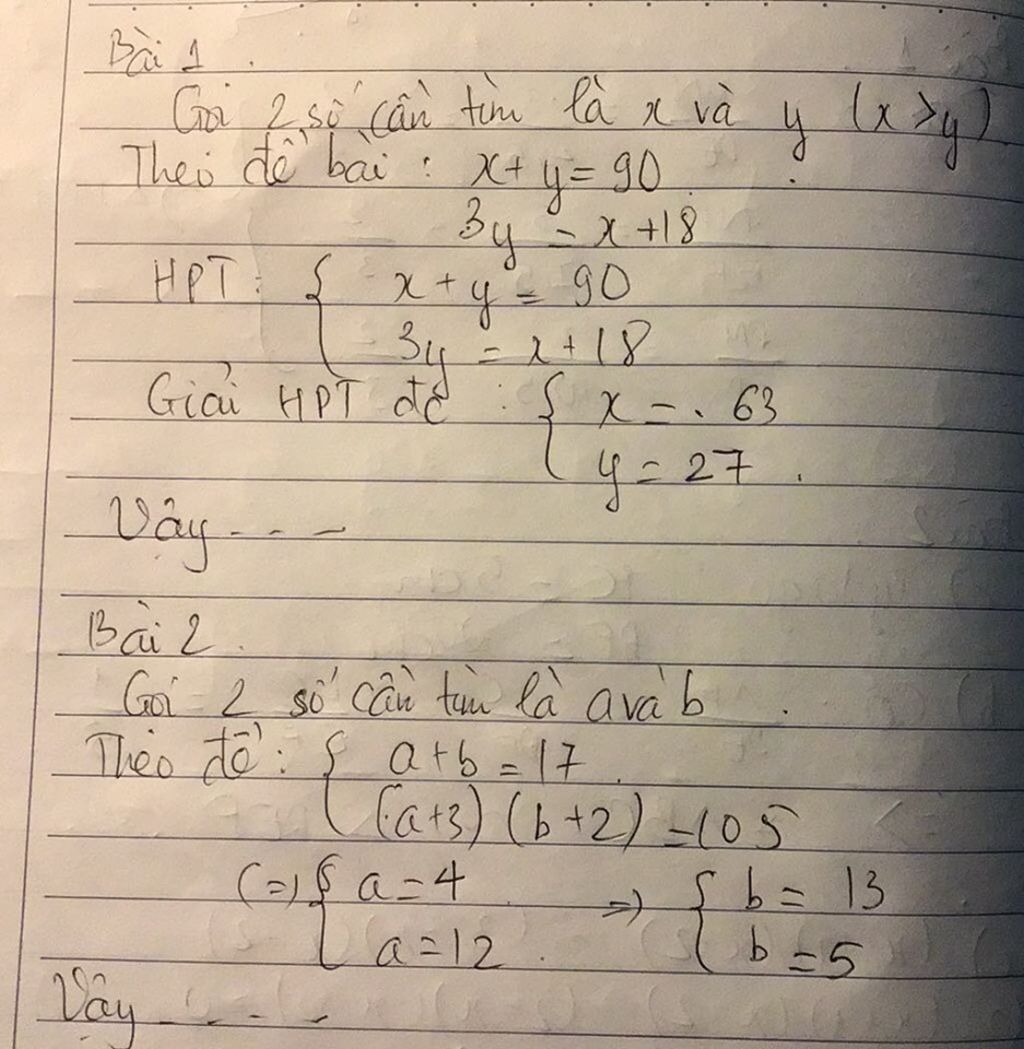 Bài 1.
Gọi 2 số cần tìm là x và y (x>y)
Theo đề bài: x+y=90
3y = x+18
HPT: { x+y = 90
3y = x+18
Giải HPT đc: { x = 63
y = 27.
Vậy - - -
Bài 2.
Gọi 2 số cần tìm là a và b.
Theo đề: { a+b = 17
(a+3)(b+2) = 105
(=) { a=4 => { b = 13
a=12 b = 5
Vậy - - - -